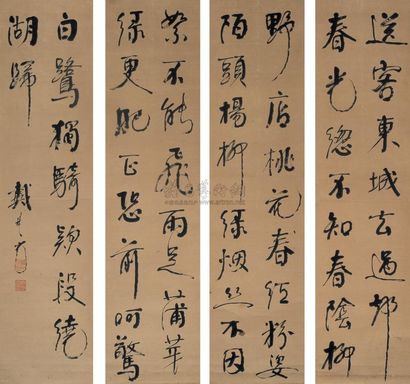 送客東城去過却
春光總不知春陰柳
野店桃花春紅粉姿
陌頭楊柳綠烟絲不因
絮不能飛雨足蒲芽
綠更肥正恐前呵驚
白鷺獨騎款段繞
湖歸
戴